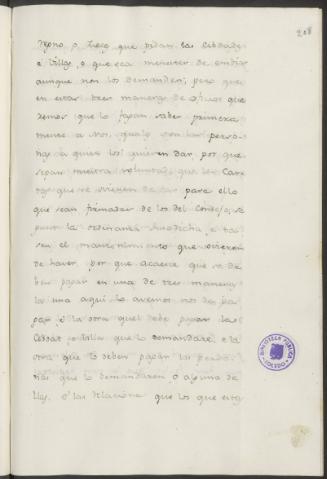 208
que pidan las Cibdades
o Villas, o que sea menester de embiar
aunque non los demanden; pero que
en estas tres maneras de oficios que
demos que lo fagan saber primera
mente a Nos, quales son las perso
nas a quien los quieren dar, por que
sepan nuestra voluntad, que las Car
tas que se vieren de dar para ello
que sean firmadas de los del Consejo, se
gunt la ordenanza susodicha, e ta
sen el mantenimiento que ovieren
de haver, por que acaece que se de
ben pagar en una de tres maneras
la una aqui lo avemos nos de pa
gar, e la otra quel debe pagar la
Cibdat o Villa que lo demandare, e la
otra que lo deben pagar las perso
nas que lo demandaren, o alguna de
llas, o las que los que
BIBLIOTECA PUBLICA
TOLEDO